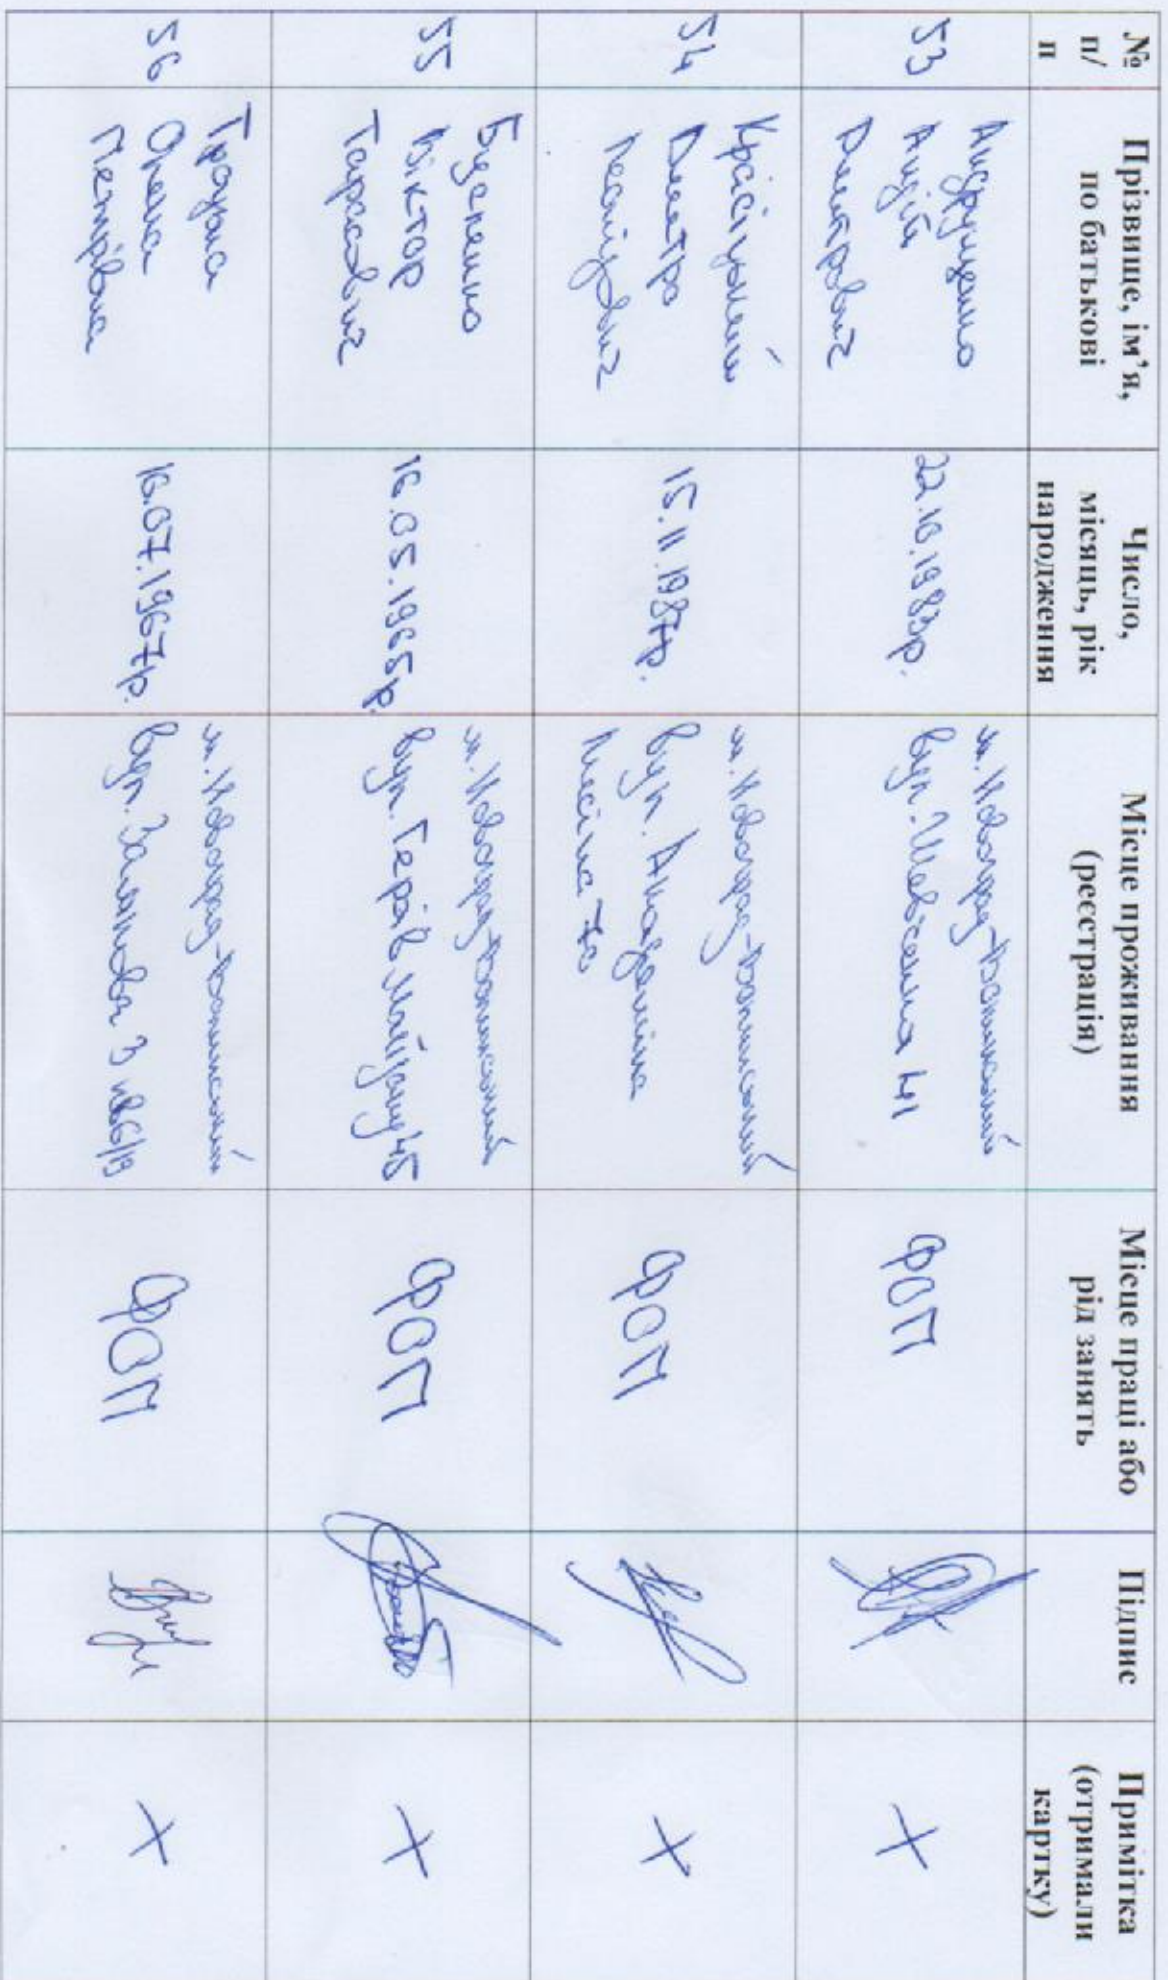 № п/п
Прізвище, ім’я, по батькові
Число, місяць, рік народження
Місце проживання (реєстрація)
Місце праці або рід занять
Підпис
Примітка (отримали картку)
53
Андрущенко
Андрій
Дмитрович
22.10.1983р.
м. Новоград-Волинський
вул. Шевченка 41
ФОП
X
54
Дмитро
Леонідович
15.11.1987р.
м. Новоград-Волинський
вул.
7а
ФОП
X
55
Віктор
Тарасович
16.05.1965р.
м. Новоград-Волинський
вул. Героїв Майдану 45
ФОП
X
56
Олена
Петрівна
16.07.1967р.
м. Новоград-Волинський
вул. 3
ФОП
X